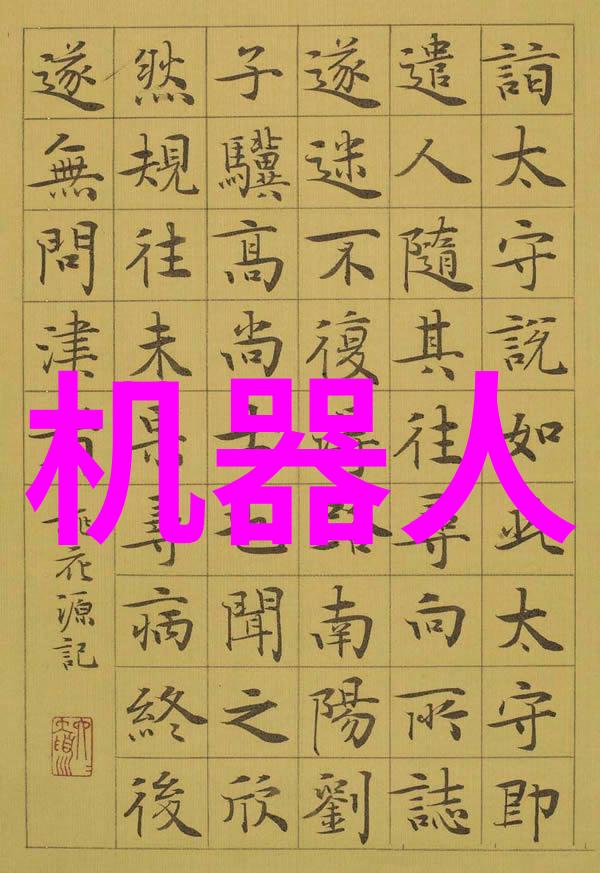 詣太守說如此太守即
遣人隨其往尋向所誌
遂迷不復得路南陽劉
子驥高尚士也聞之欣
然規往未果尋病終後
遂無問津者
花源記
机器人